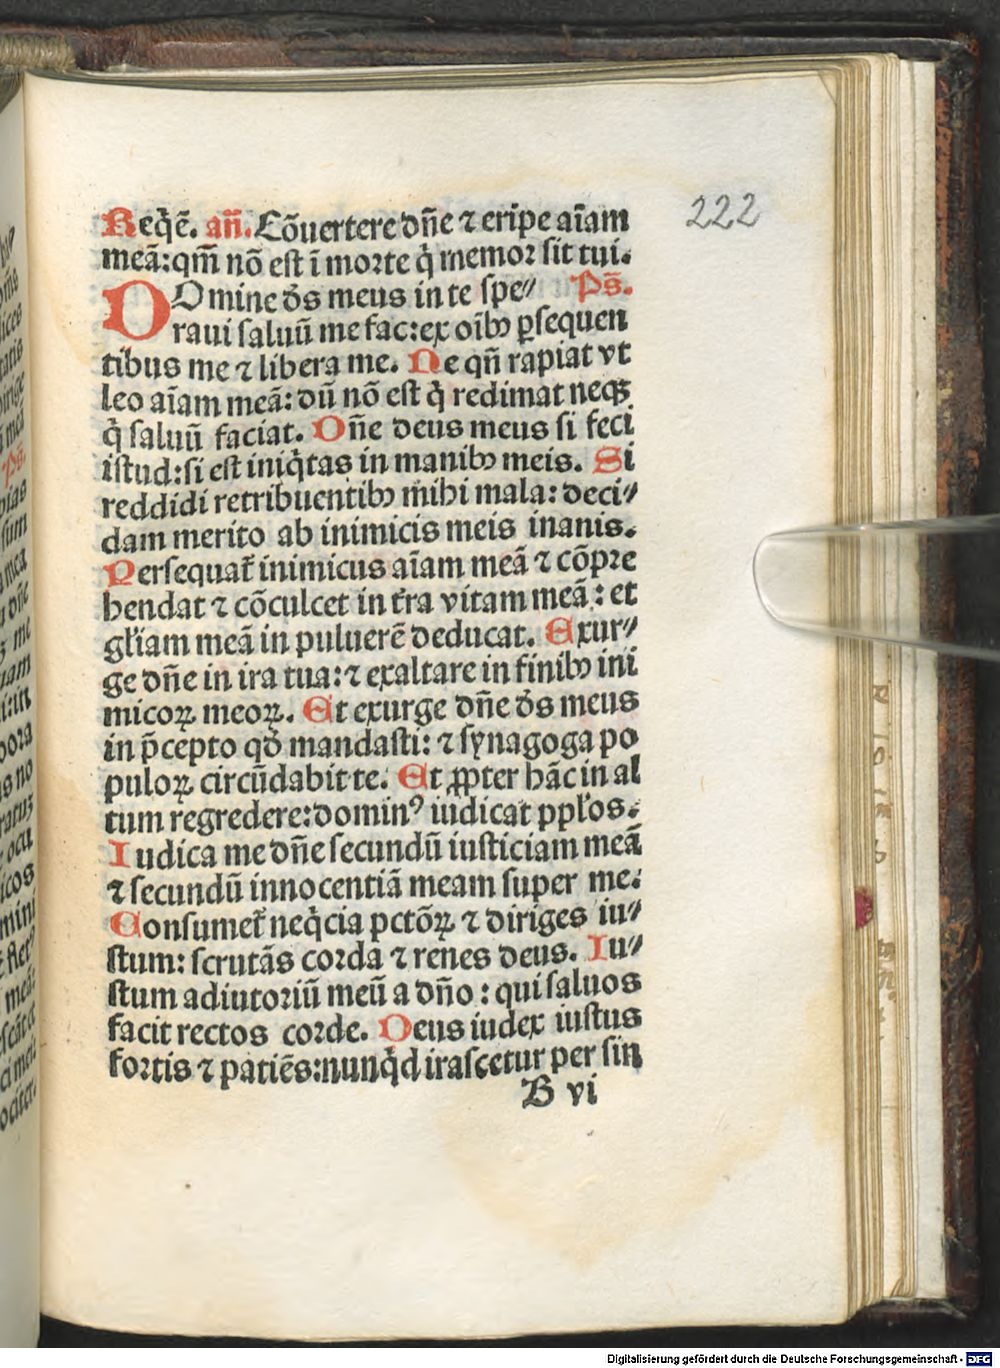 222
Reqē. añ. Cōuertere dñe ⁊ eripe aīam
meā: qm̄ nō est ī morte q̇ memor sit tui.
DOmine d̄s meus in te spe⸗ Ps̄.
raui saluū me fac: ex oībꝰ ꝑsequen
tibus me ⁊ libera me. Ne qñ rapiat vt
leo aīam meā: dū nō est q̇ redimat neqꝫ
q̇ saluū faciat. Dñe deus meus si feci
istud: si est iniq̇tas in manibꝰ meis. Si
reddidi retribuentibꝰ mihi mala: deci⸗
dam merito ab inimicis meis inanis.
Persequat̄ inimicus aīam meā ⁊ cōpre
hendat ⁊ cōculcet in t̄ra vitam meā: et
gl̄iam meā in puluerē deducat. Exur⸗
ge dñe in ira tua: ⁊ exaltare in finibꝰ ini
micoꝝ meoꝝ. Et exurge dñe d̄s meus
in p̄cepto qd̄ mandasti: ⁊ synagoga po
puloꝝ circūdabit te. Et ꝓpter hāc in al
tum regredere: dominꝰ iudicat ppl̄os.
Iudica me dñe secundū iusticiam meā
⁊ secundū innocentiā meam super me.
Consumet̄ neq̇cia pctōꝝ ⁊ diriges iu⸗
stum: scrutās corda ⁊ renes deus. Iu⸗
stum adiutoriū meū a dño: qui saluos
facit rectos corde. Deus iudex iustus
fortis ⁊ patiēs: nunq̇d irascetur per sin
B vi
Digitalisierung gefördert durch die Deutsche Forschungsgemeinschaft - DFG